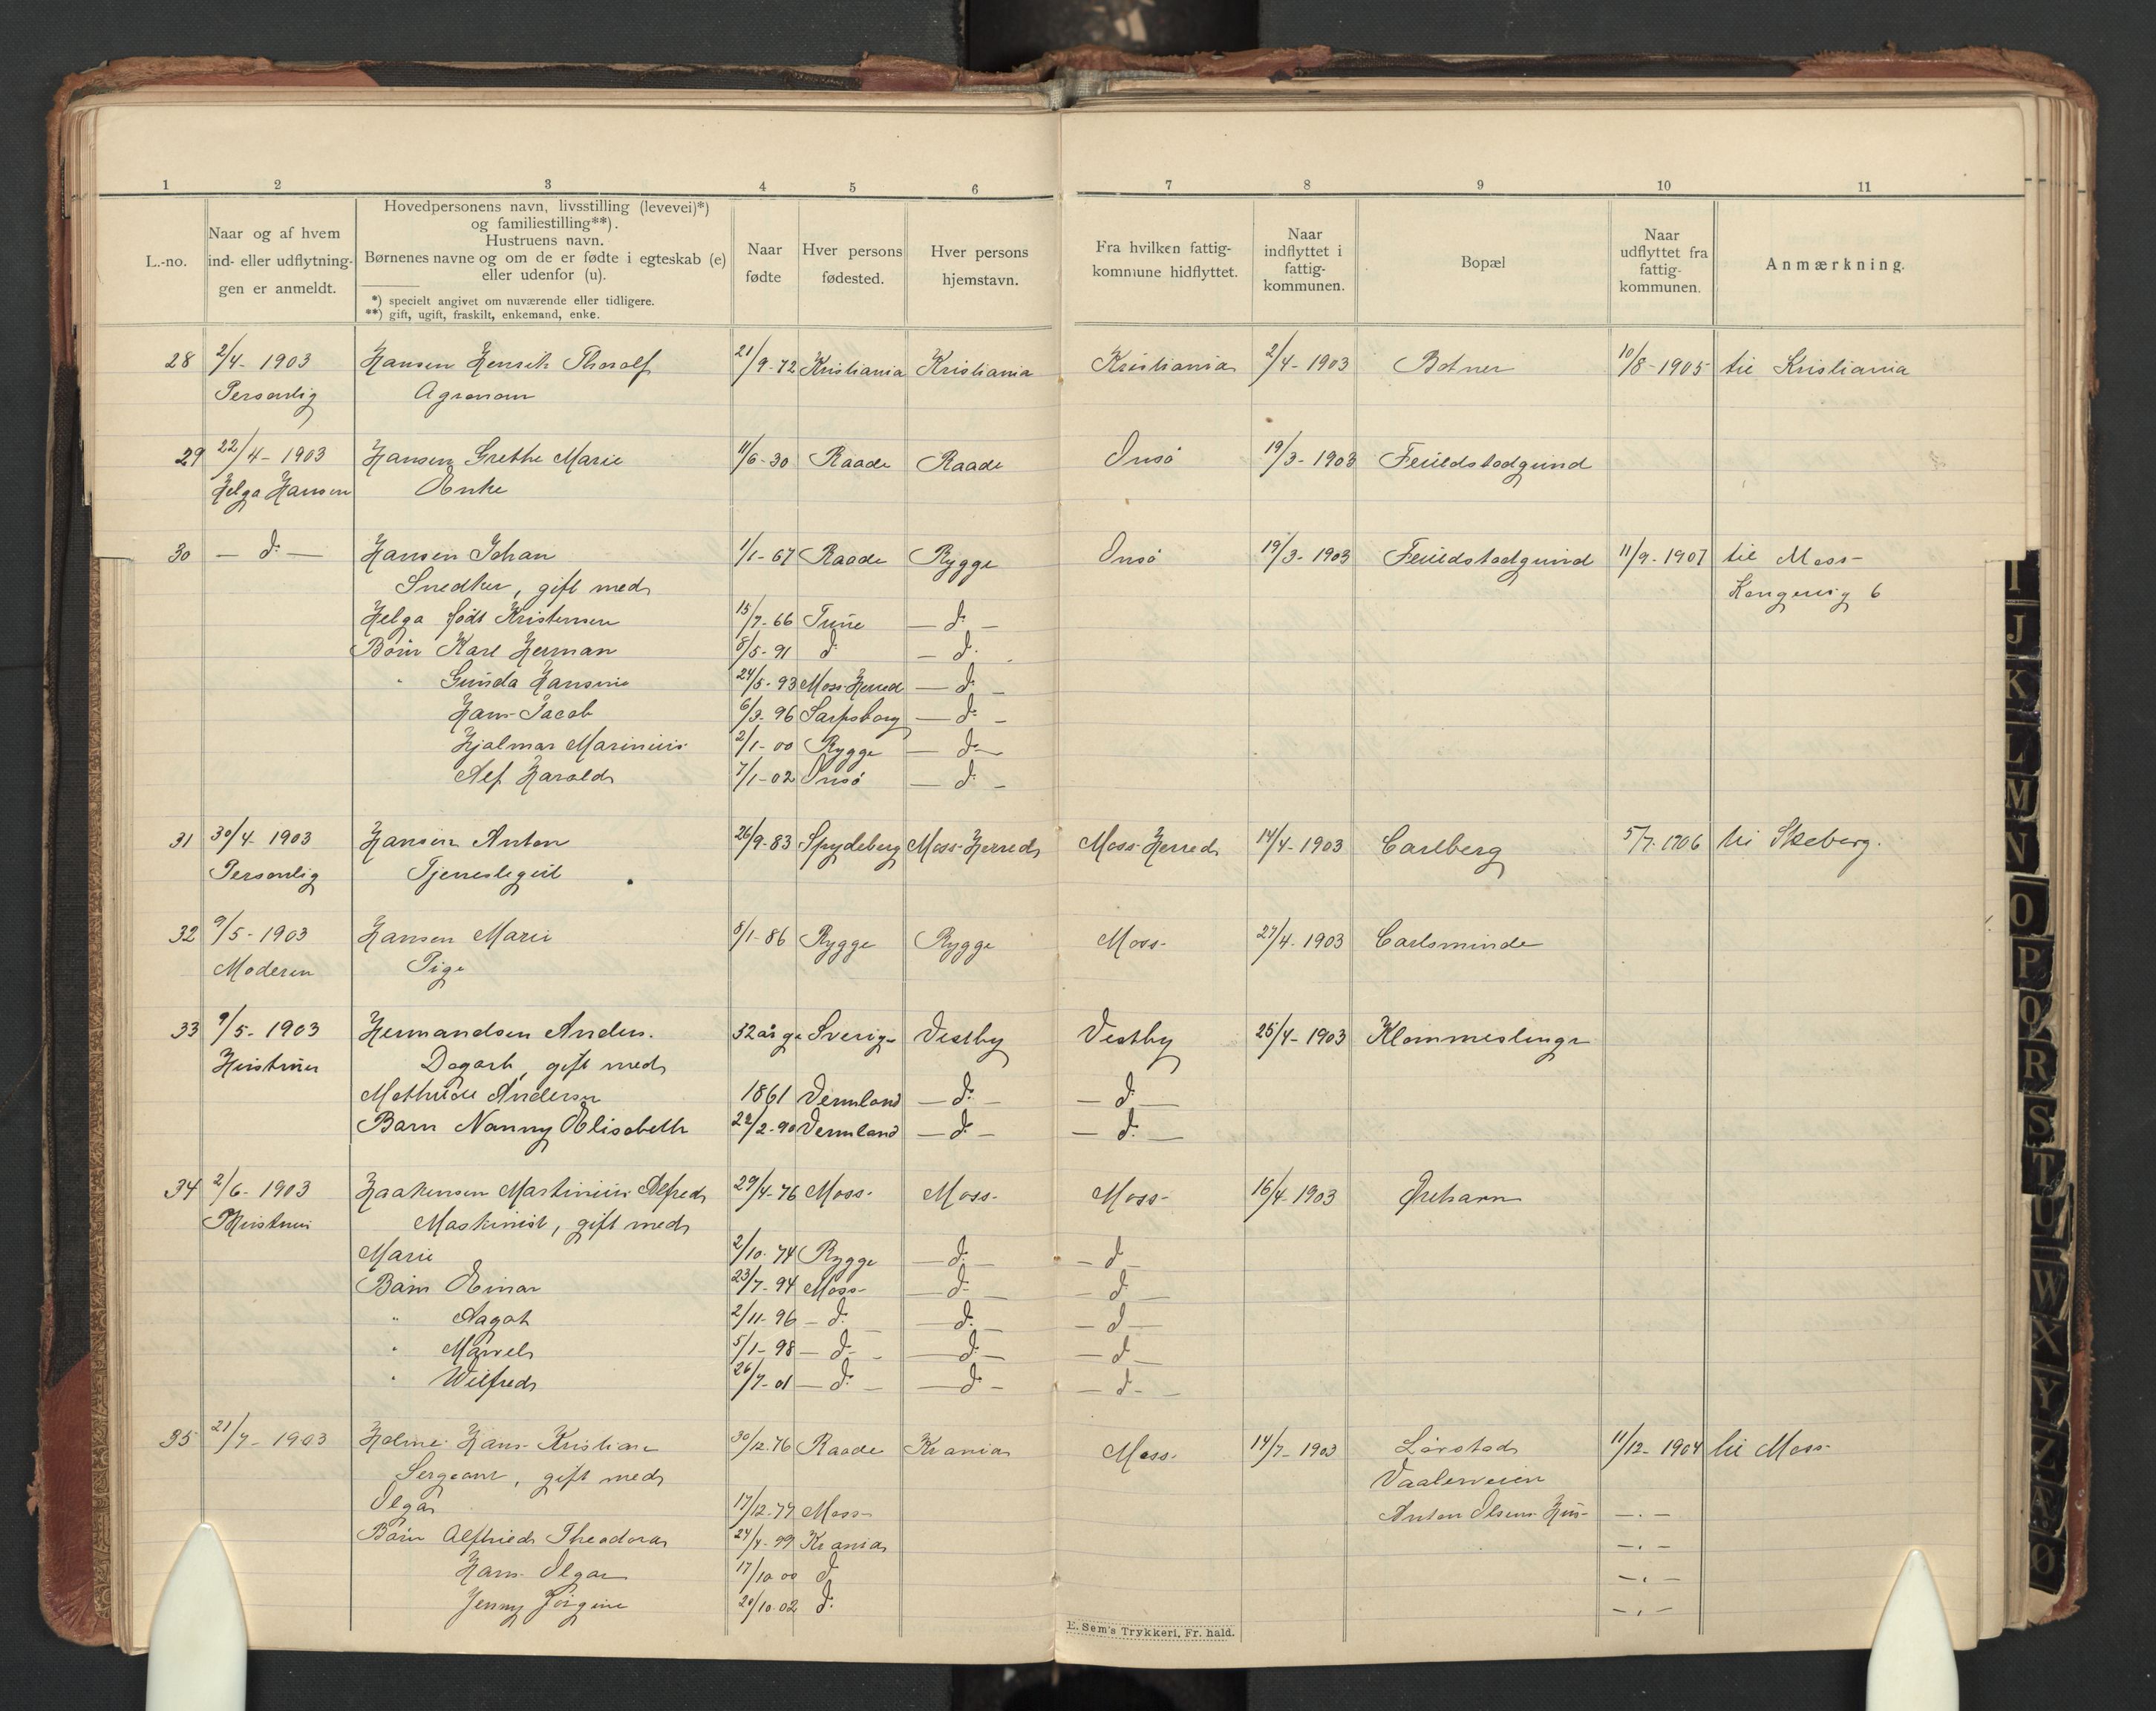 1 2 3 4 5 6 7 8 9 10 11
L.-no.
Naar og af hvem
ind- eller udflytnin-
gen er anmeldt.
Hovedpersonens navn, livsstilling (levevei)*)
og familiestilling**).
Hustruens navn.
Børnenes navne og om de er fødte i egteskab (e)
eller udenfor (u).
*) specielt angivet om nuværende eller tidligere.
**) gift, ugift, fraskilt, enkemand, enke.
Naar
fødte
Hver persons
fødested.
Hver persons
hjemstavn.
Fra hvilken fattig-
kommune hidflyttet.
Naar
indflyttet i
fattig-
kommunen.
Bopæl
Naar
udflyttet fra
fattig-
kommunen.
Anmærkning.
28 2/4- 1903 Hansen Henrik Thoralf 21/9-72 Kristiania Kristiania Kristiania 2/4-1903 Botner 10/8-1905 til Kristiania
Personlig Agronom
29 22/4-1903 Hansen Grethe Marie 11/6-30 Raade Raade Onsö 19/3-1903
Helga Hansen Enke
30 — d: — Hansen Johan 1/1-67 Raade Rygge Onsö 19/3-1903 11/9-1907 til Moss-
Snedker, gift med 6
Helga född Kristensen 15/7-66 Tune — d: —
Börn Karl Herman 8/5-91 d: — d:
" Gunda Hansine 24/5-93 Moss Herred — d: —
Hans Jacob 6/3-96 Sarpsborg — d: —
Hjalmar Marinius 2/1-00 Rygge — d: —
Alf Harald 7/1-02 Onsö — d: —
31 30/4 1903 Hansen Anton 26/9-83 Spydeberg Moss-Herred Moss-Herred 14/4-1903 Carlberg 5/7-1906 til Skeberg.
Personlig Tjenestegut
32 9/5-1903 Hansen Marie 8/1-86 Rygge Rygge Moss- 27/4-1903 Carlsminde
Moderen Pige
33 9/5-1903 Hermandsen Anders. 32 år g. Sverige Vestby Vestby 25/4-1903
Hustruen Dagarb, gift med
Mathilde Andersen 1861 Vermland — d: — — d: —
Barn Nanny Elisabeth 22/2-90 Vermland — d: — — d: —
34 2/6-1903 Haakensen Martinius Alfred 29/4-76 Moss- Moss- Moss- 16/4-1903 Örehavn
Hustruen Maskinist, gift med
Marie 2/10-74 Rygge — d: — — d —
Börn Einar 23/7-94 Moss- — d: — — d: —
" Aagot 2/11-96 — d: — — d: — — d —
" 5/1-98 — d: — — d: — — d —
" Wilfred 26/7-01 — d: — — d: — — d —
35 21/7-1903 Holme Hans Kristian 30/12-76 Raade Krania Moss- 14/7-1903 Lövstad 11/12-1904 til Moss-
Sergeant, gift med Vaalerveien
Olga 17/12-77 Moss- Anton Olsens Hus — " —
Börn Alfhild Theodora 24/4-99 Krania — " —
Hans Olgar 17/10 00 d: — " —
Jenny Jörgine 20/10-02 d: — " —
E. Sem's Trykkeri, Fr. hald.
I
J
K
L
M
N
O
P
Q
R
S
T
U
W
X
Y
Z
Ø